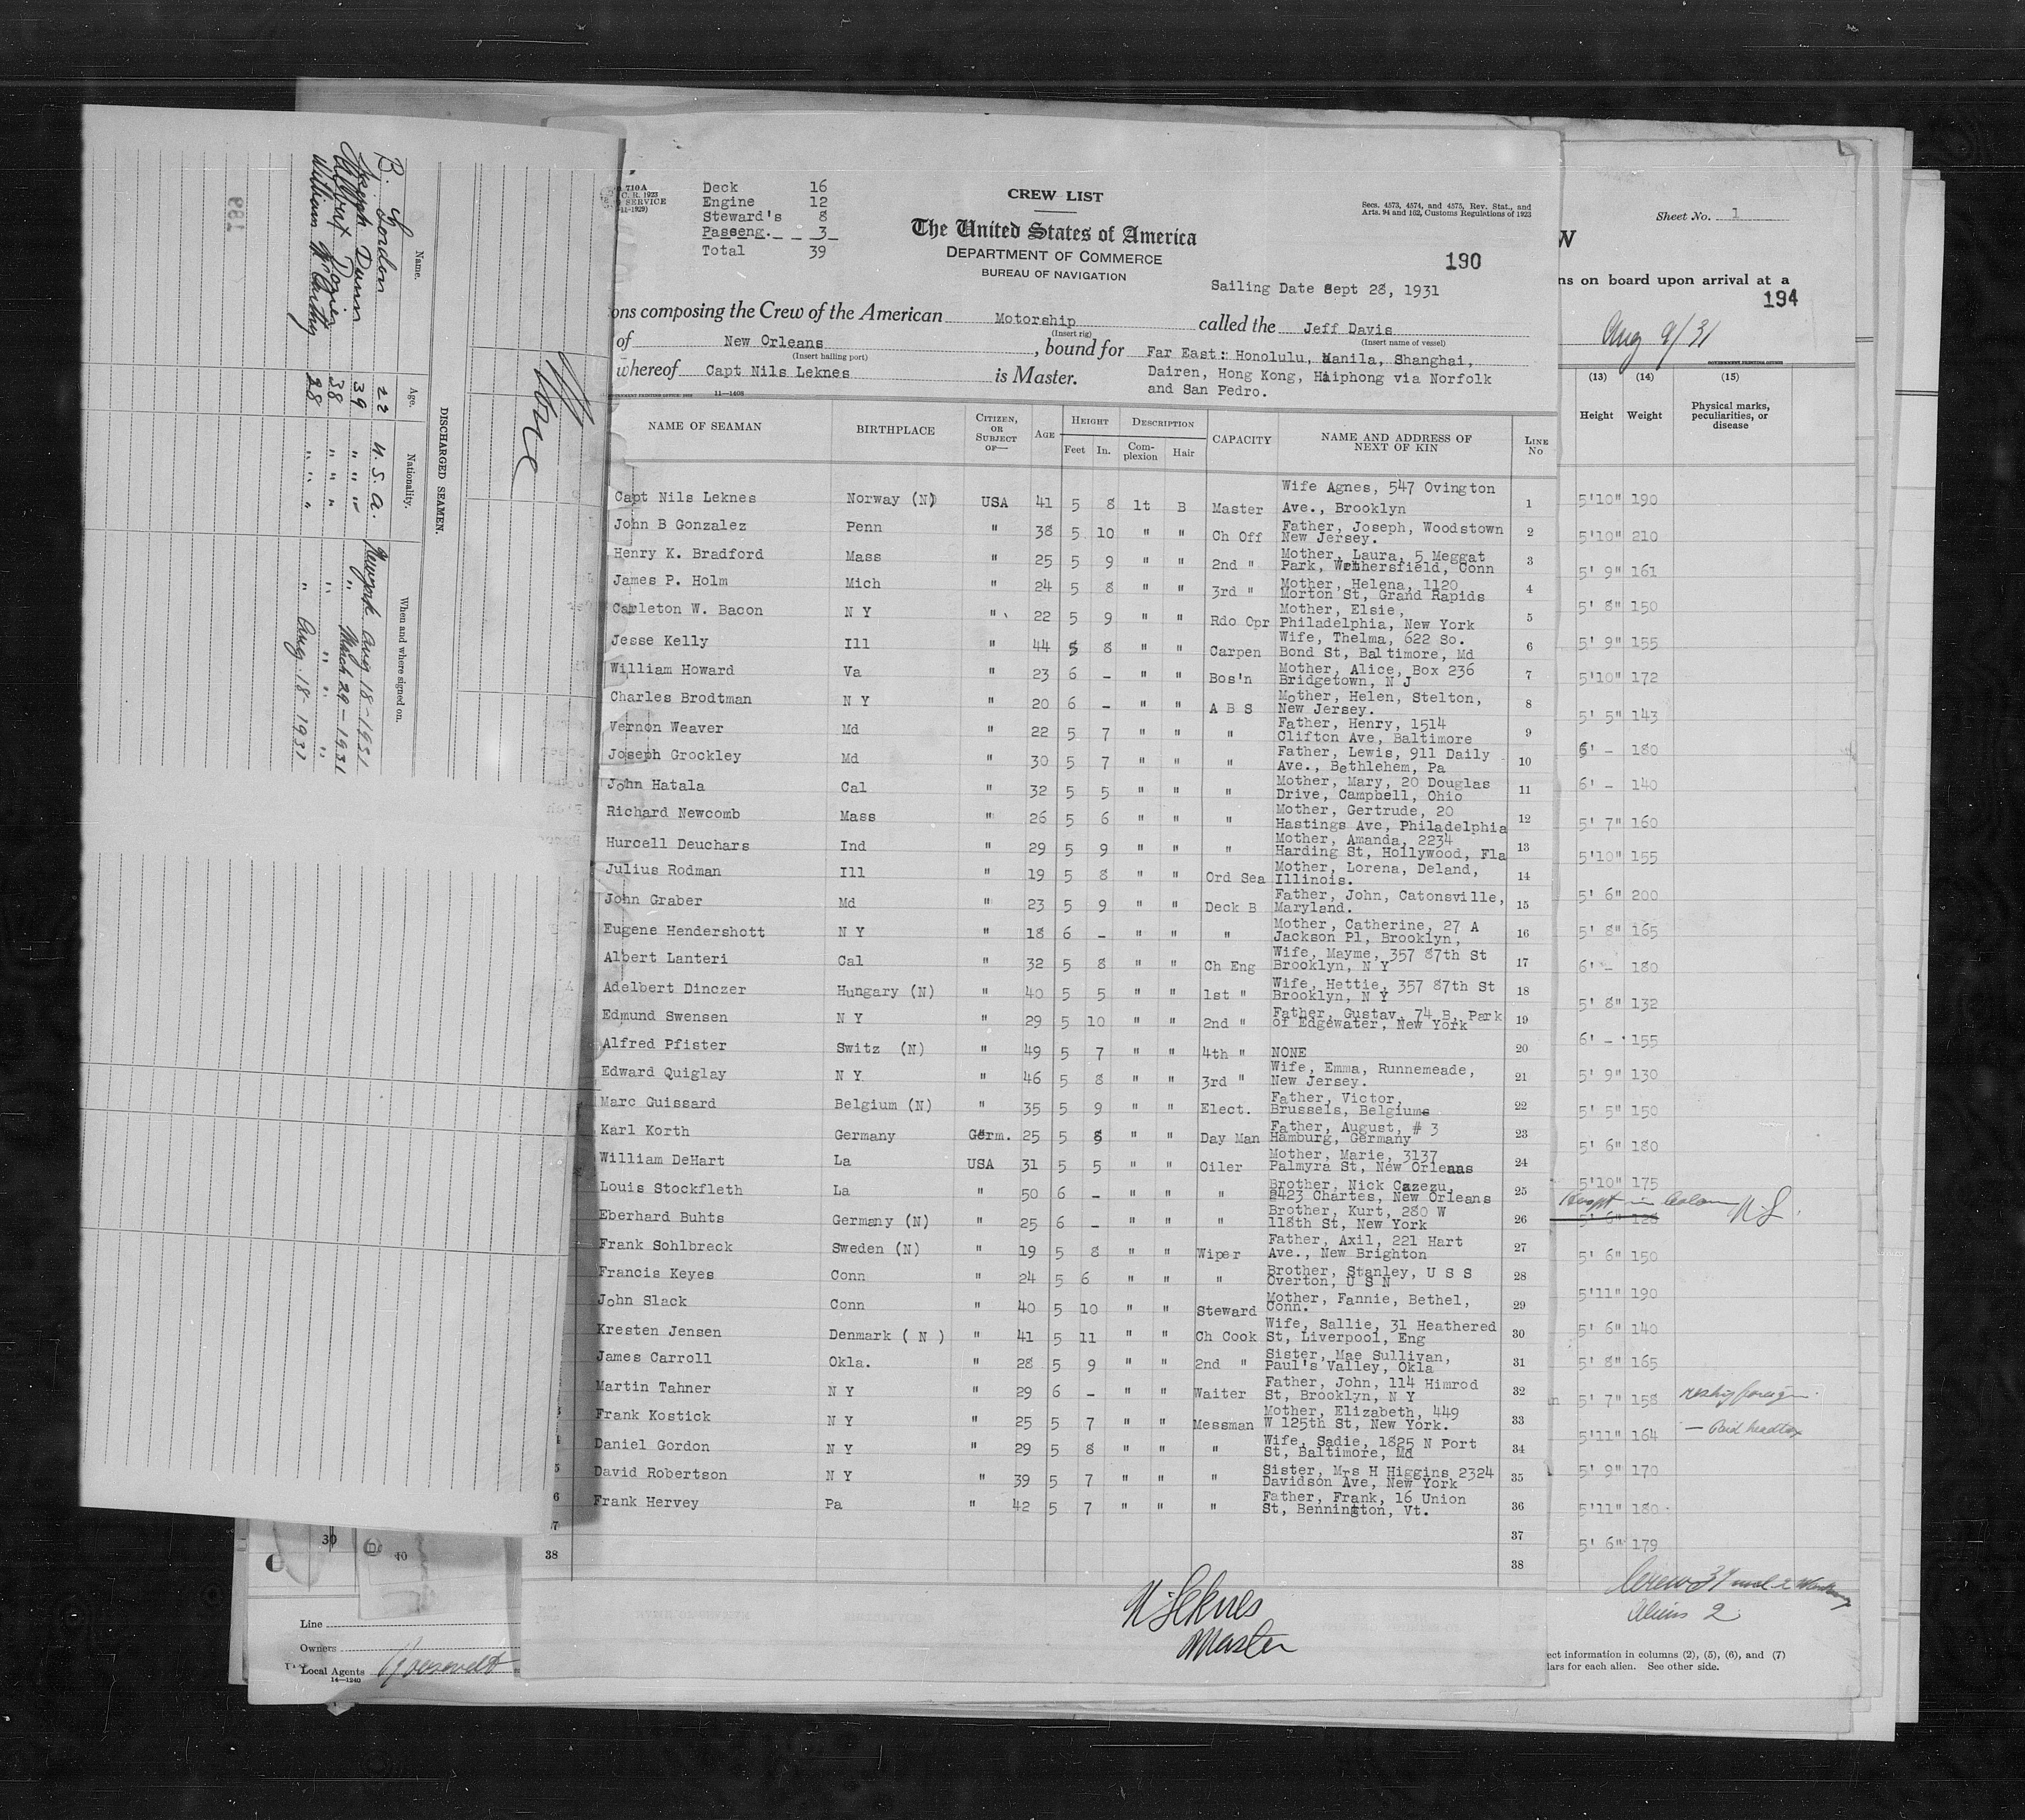 710A
Deck 16
Engine 12
Steward's 8
Passeng. 3
Total 39
CREW LIST
The United States of America
DEPARTMENT OF COMMERCE
BUREAU OF NAVIGATION
Secs. 4573, 4574, and 4575, Rev. Stat., and
Arts. 94 and 162, Customs Regulations of 1923
190
Sailing Date Sept 28, 1931
ons composing the Crew of the American Motorship called the Jeff Davis
(Insert rig) (Insert name of vessel)
of New Orleans, bound for Far East: Honolulu, Manila, Shanghai,
(Insert hailing port)
whereof Capt Nils Leknes is Master. Dairen, Hong Kong, Haiphong via Norfolk
and San Pedro.
11—1408
NAME OF SEAMAN BIRTHPLACE CITIZEN, OR SUBJECT OF— AGE HEIGHT Feet In. DESCRIPTION Complexion Hair CAPACITY NAME AND ADDRESS OF NEXT OF KIN LINE No
Capt Nils Leknes Norway (N) USA 41 5 8 lt B Master Wife Agnes, 547 Ovington Ave., Brooklyn 1
John B Gonzalez Penn " 38 5 10 " " Ch Off Father, Joseph, Woodstown New Jersey. 2
Henry K. Bradford Mass " 25 5 9 " " 2nd " Mother, Laura, 5 Meggat Park, Wethersfield, Conn 3
James P. Holm Mich " 24 5 8 " " 3rd " Mother, Helena, 1120 Morton St, Grand Rapids 4
Carleton W. Bacon N Y " 22 5 9 " " Rdo Opr Mother, Elsie, Philadelphia, New York 5
Jesse Kelly Ill " 44 5 8 " " Carpen Wife, Thelma, 622 So. Bond St, Baltimore, Md 6
William Howard Va " 23 6 – " " Bos'n Mother, Alice, Box 236 Bridgetown, N J 7
Charles Brodtman N Y " 20 6 – " " A B S Mother, Helen, Stelton, New Jersey. 8
Vernon Weaver Md " 22 5 7 " " " Father, Henry, 1514 Clifton Ave, Baltimore 9
Joseph Grockley Md " 30 5 7 " " " Father, Lewis, 911 Daily Ave., Bethlehem, Pa 10
John Hatala Cal " 32 5 5 " " " Mother, Mary, 20 Douglas Drive, Campbell, Ohio 11
Richard Newcomb Mass " 26 5 6 " " " Mother, Gertrude, 20 Hastings Ave, Philadelphia 12
Hurcell Deuchars Ind " 29 5 9 " " " Mother, Amanda, 2234 Harding St, Hollywood, Fla 13
Julius Rodman Ill " 19 5 8 " " Ord Sea Mother, Lorena, Deland, Illinois. 14
John Graber Md " 23 5 9 " " Deck B Father, John, Catonsville, Maryland. 15
Eugene Hendershott N Y " 18 6 – " " " Mother, Catherine, 27 A Jackson Pl, Brooklyn, 16
Albert Lanteri Cal " 32 5 8 " " Ch Eng Wife, Mayme, 357 87th St Brooklyn, N Y 17
Adelbert Dinczer Hungary (N) " 40 5 5 " " 1st " Wife, Hettie, 357 87th St Brooklyn, N Y 18
Edmund Swensen N Y " 29 5 10 " " 2nd " Father, Gustav, 74 B, Park of Edgewater, New York 19
Alfred Pfister Switz (N) " 49 5 7 " " 4th " NONE 20
Edward Quiglay N Y " 46 5 8 " " 3rd " Wife, Emma, Runnemeade, New Jersey. 21
Marc Guissard Belgium (N) " 35 5 9 " " Elect. Father, Victor, Brussels, Belgiums 22
Karl Korth Germany Germ. 25 5 8 " " Day Man Father, August, # 3 Hamburg, Germany 23
William DeHart La USA 31 5 5 " " Oiler Mother, Marie, 3137 Palmyra St, New Orleans 24
Louis Stockfleth La " 50 6 – " " " Brother, Nick Cazezu, 2423 Chartes, New Orleans 25
Eberhard Buhts Germany (N) " 25 6 – " " " Brother, Kurt, 280 W 118th St, New York 26
Frank Sohlbreck Sweden (N) " 19 5 8 " " Wiper Father, Axil, 221 Hart Ave., New Brighton 27
Francis Keyes Conn " 24 5 6 " " " Brother, Stanley, U S S Overton, U S N 28
John Slack Conn " 40 5 10 " " Steward Mother, Fannie, Bethel, Conn. 29
Kresten Jensen Denmark ( N ) " 41 5 11 " " Ch Cook Wife, Sallie, 31 Heathered St, Liverpool, Eng 30
James Carroll Okla. " 28 5 9 " " 2nd " Sister, Mae Sullivan, Paul's Valley, Okla 31
Martin Tahner N Y " 29 6 – " " Waiter Father, John, 114 Himrod St, Brooklyn, N Y 32
Frank Kostick N Y " 25 5 7 " " Messman Mother, Elizabeth, 449 W 125th St, New York. 33
Daniel Gordon N Y " 29 5 8 " " " Wife, Sadie, 1825 N Port St, Baltimore, Md 34
David Robertson N Y " 39 5 7 " " " Sister, Mrs H Higgins 2324 Davidson Ave, New York 35
Frank Hervey Pa " 42 5 7 " " " Father, Frank, 16 Union St, Bennington, Vt. 36
37
38 38
N. Leknes
Master
DISCHARGED SEAMEN.
Name. Age. Nationality. When and where signed on.
B. London 22 U.S.A. Newyork Aug 18-1931
Joseph Dunn 39 " " " " March 29-1931
Albert Dozier 38 " " " " " "
William McCarthy 28 " " " " Aug. 18-1931
189
None
Sheet No. 1
W
ns on board upon arrival at a
194
Aug 9/31
(13) (14) (15)
Height Weight Physical marks, peculiarities, or disease
5'10" 190
5'10" 210
5' 9" 161
5' 8" 150
5' 9" 155
5'10" 172
5' 5" 143
6' – 180
6' – 140
5' 7" 160
5'10" 155
5' 6" 200
5' 8" 165
6' – 180
5' 8" 132
6' – 155
5' 9" 130
5' 5" 150
5' 6" 180
5'10" 175
5' 6" 128
5' 6" 150
5'11" 190
5' 6" 140
5' 8" 165
5' 7" 158 reship foreign
5'11" 164 — Paid headtax
5' 9" 170
5'11" 180
5' 6" 179
Aliens 2
ect information in columns (2), (5), (6), and (7)
lars for each alien. See other side.
30
Line
Owners
Local Agents Roosevelt
14—1240